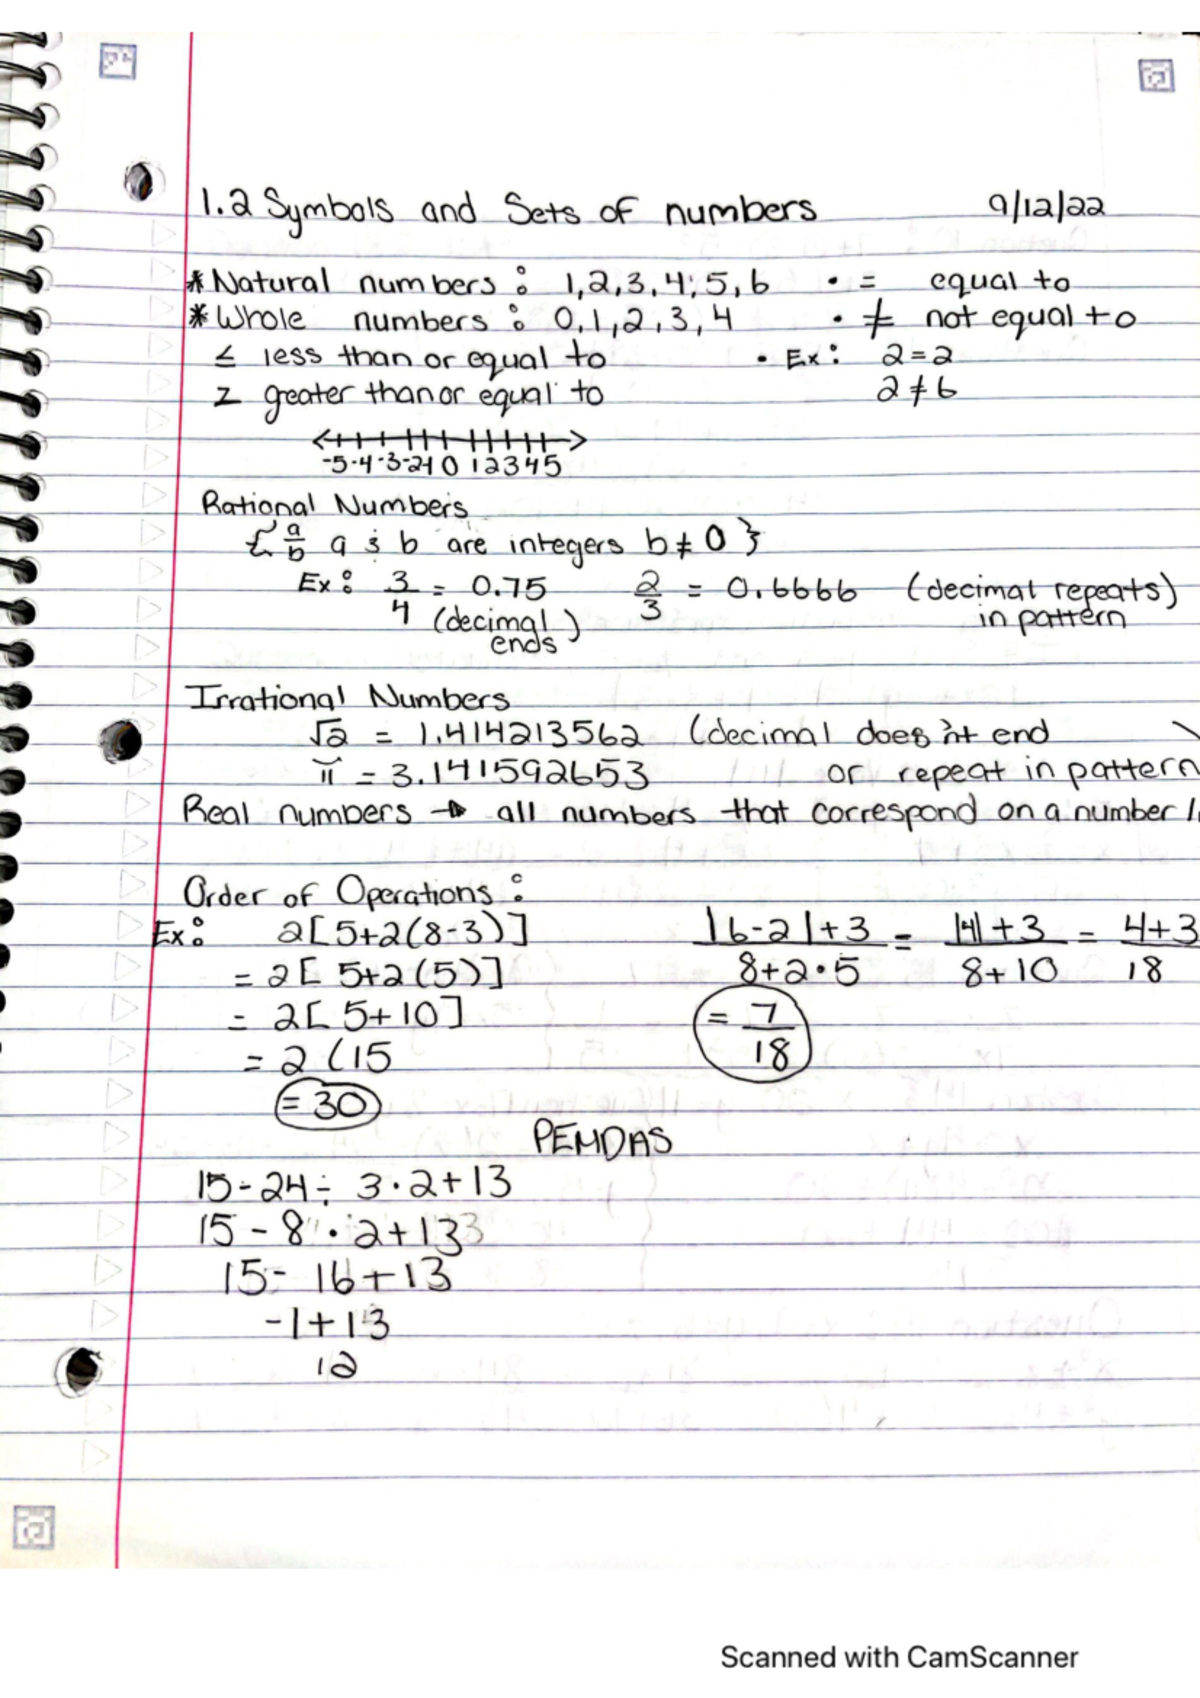 1.2 Symbols and Sets of numbers 9/12/22
* Natural numbers : 1,2,3,4,5,6 • = equal to
* Whole numbers : 0,1,2,3,4 • ≠ not equal to
≤ less than or equal to • Ex: 2=2
≥ greater than or equal to 2≠6
-5-4-3-2-1 0 1 2 3 4 5
Rational Numbers
{ a/b a & b are integers b≠0 }
Ex: 3/4 = 0.75 2/3 = 0.6666 (decimal repeats)
(decimal ends) in pattern
Irrational Numbers
√2 = 1.414213562 (decimal does n't end
π = 3.141592653 or repeat in pattern
Real numbers → all numbers that correspond on a number
Order of Operations :
Ex: 2[5+2(8-3)] |6-2|+3 / 8+2•5 = |4|+3 / 8+10 = 4+3 / 18
= 2[5+2(5)]
= 2[5+10] = 7/18
= 2(15
= 30
PEMDAS
15-24÷3·2+13
15-8·2+13
15-16+13
-1+13
12
Scanned with CamScanner